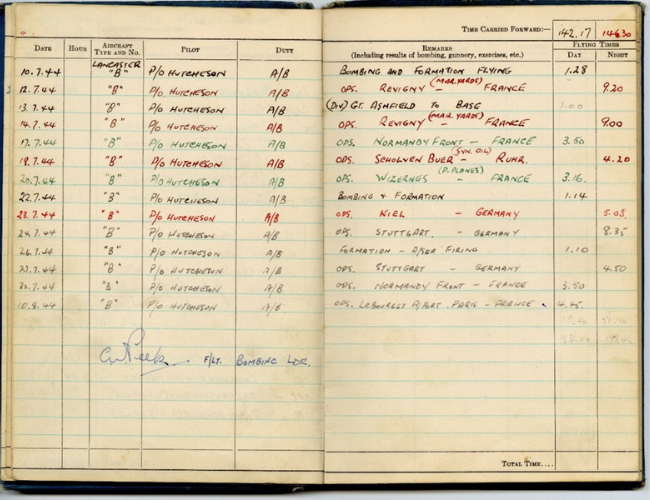 TIME CARRIED FORWARD:— 142.17 146.30
DATE HOUR AIRCRAFT TYPE AND NO. PILOT DUTY REMARKS (Including results of bombing, gunnery, exercises, etc.) FLYING TIMES DAY NIGHT
10.7.44 LANCASTER "B" P/O HUTCHESON A/B BOMBING AND FORMATION FLYING 1.28
12.7.44 "B" P/O HUTCHESON A/B OPS. REVIGNY (MAR. YARDS) – FRANCE 9.20
13.7.44 "B" P/O HUTCHESON A/B (DIV) GT. ASHFIELD TO BASE 1.00
14.7.44 "B" P/O HUTCHESON A/B OPS. REVIGNY (MAR. YARDS) – FRANCE 9.00
17.7.44 "B" P/O HUTCHESON A/B OPS. NORMANDY FRONT – FRANCE 3.50
"B" P/O HUTCHESON A/B OPS. SCHOLVEN BUER (SYN. OIL) – RUHR. 4.20
20.7.44 "B" P/O HUTCHESON A/B OPS. WIZERNES (P. PLANES) – FRANCE 3.16
22.7.44 "B" P/O HUTCHESON A/B BOMBING & FORMATION 1.14
23.7.44 "B" P/O HUTCHESON A/B OPS. KIEL – GERMANY 5.05
24.7.44 "B" P/O HUTCHESON A/B OPS. STUTTGART – GERMANY 8.35
26.7.44 "B" P/O HUTCHESON A/B FORMATION – FIRING 1.10
"B" P/O HUTCHESON A/B OPS. STUTTGART – GERMANY 4.50
"B" P/O HUTCHESON A/B OPS. NORMANDY FRONT – FRANCE 3.50
10.8.44 "B" P/O HUTCHESON A/B OPS. LEBOURGET A/PORT. PARIS – FRANCE 4.45
F/LT. BOMBING LDR.
TOTAL TIME....